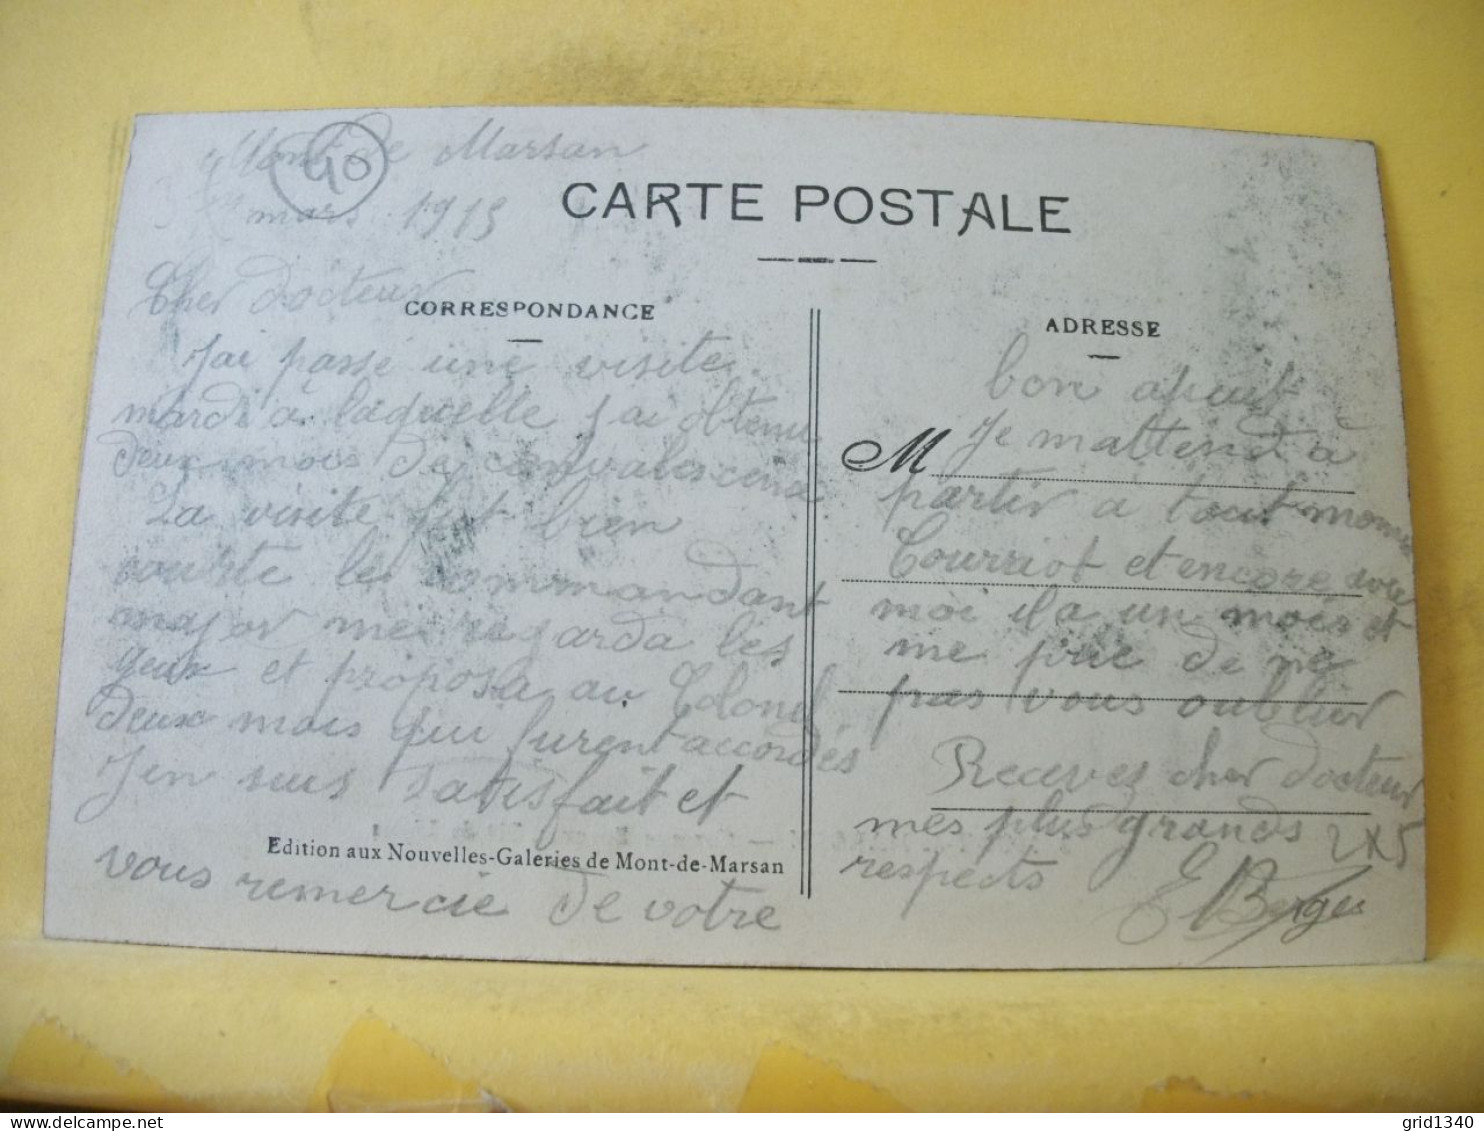 Mont de Marsan
40
mars 1915
CARTE POSTALE
Cher Docteur
CORRESPONDANCE
J'ai passé une visite
mardi à laquelle j'ai obtenu
deux mois de convalescence
La visite fut bien
courte le commandant
major me regarda les
yeux et proposa au Colonel
deux mois qui furent accordés
J'en suis satisfait et
Edition aux Nouvelles-Galeries de Mont-de-Marsan
vous remercie de votre
ADRESSE
bon apui
Je mattend à
M
partir à tout mome
Courriot et encore avec
moi il a un mois et
me prie de ne
pas vous oublier
Recevez cher docteur
mes plus grands
2x5
respects
E Berges
delcampe.net
grid1340